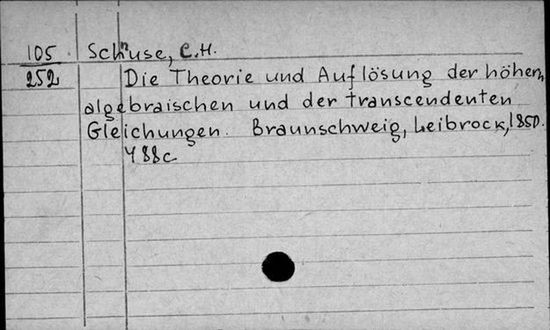 105 Schnuse, C.H.
252 Die Theorie und Auflösung der höhen,
algebraischen und der transcendenten
Gleichungen. Braunschweig, Leibrock, 1850.
488c